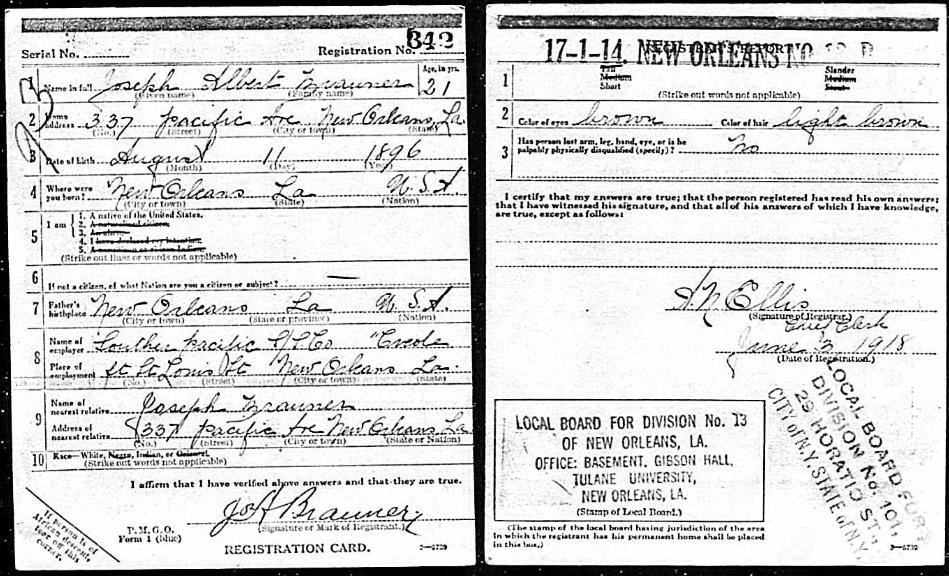 Serial No.
Registration No. 342
1 Name in full Joseph Albert Brauner
(Given name) (Family name)
Age, in yrs. 21
2 Home address 337 Pacific Ave New Orleans, La
(No.) (Street) (City or town) (State)
3 Date of birth August 11 1896
(Month) (Day) (Year)
4 Where were you born? New Orleans La U.S.A.
(City or town) (State) (Nation)
5 I am
1. A native of the United States.
2. A naturalized citizen.
3. An alien.
4. I have declared my intention.
5. A noncitizen or citizen Indian.
(Strike out lines or words not applicable)
6 If not a citizen, of what Nation are you a citizen or subject? —
7 Father's birthplace New Orleans La U.S.A.
(City or town) (State or province) (Nation)
8 Name of employer Souther Pacific S/S Co "Creole
Place of employment ft. St Louis St New Orleans La.
(No.) (Street) (City or town) (State)
9 Name of nearest relative Joseph Brauner
Address of nearest relative 337 Pacific Ave New Orleans, La
(No.) (Street) (City or town) (State or Nation)
10 Race—White, Negro, Indian, or Oriental.
(Strike out words not applicable)
I affirm that I have verified above answers and that they are true.
Jos A Brauner
(Signature or Mark of Registrant.)
P.M.G.O.
Form 1 (blue)
REGISTRATION CARD.
If person is of
African descent,
tear off this
corner.
17-1-14. NEW ORLEANS NO 13 D
REGISTRAR'S REPORT
1 Tall
Medium
Short
Slender
Medium
Stout
(Strike out words not applicable)
2 Color of eyes brown Color of hair light brown
3 Has person lost arm, leg, hand, eye, or is he
palpably physically disqualified (specify)? No
I certify that my answers are true; that the person registered has read his own answers;
that I have witnessed his signature, and that all of his answers of which I have knowledge,
are true, except as follows:
A N Ellis
(Signature of Registrar.)
Chief Clerk
June 3, 1918
(Date of Registration.)
LOCAL BOARD FOR DIVISION No. 13
OF NEW ORLEANS, LA.
OFFICE: BASEMENT, GIBSON HALL,
TULANE UNIVERSITY,
NEW ORLEANS, LA.
(Stamp of Local Board.)
(The stamp of the local board having jurisdiction of the area
in which the registrant has his permanent home shall be placed
in this box.)
LOCAL BOARD FOR
DIVISION No. 101,
29 HORATIO ST.,
CITY of N.Y. STATE of N.Y.